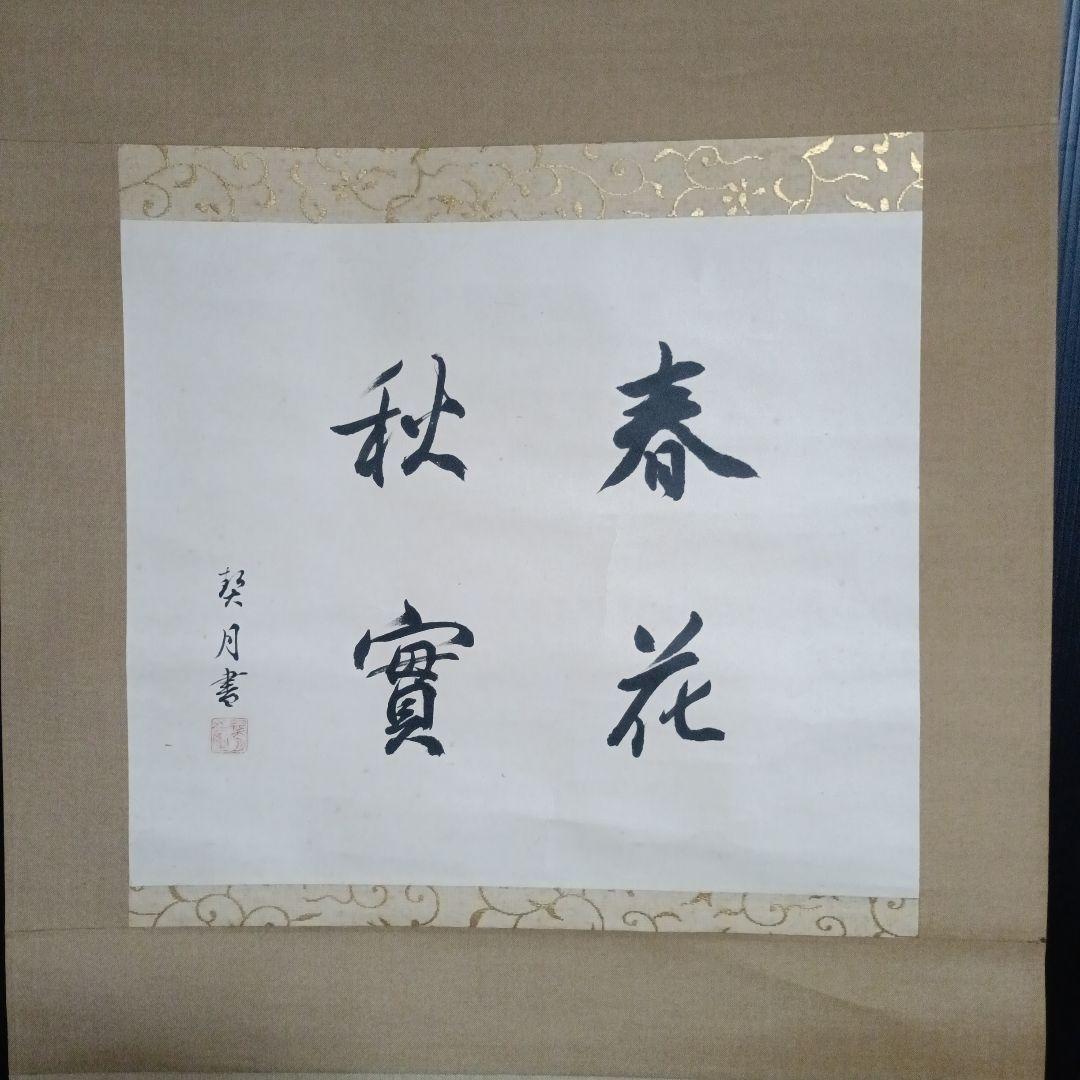 春花
秋實
契月書